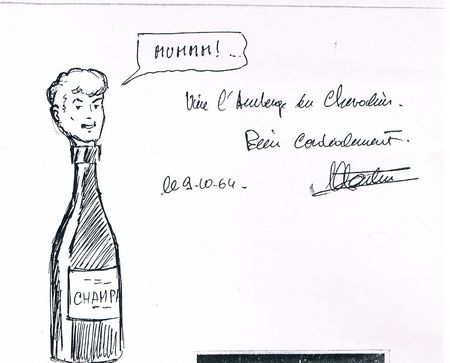 MUHHH! ...
Vive l'Auberge du Chevalier.
Bien cordialement.
le 9-10-64.
CHAMPA